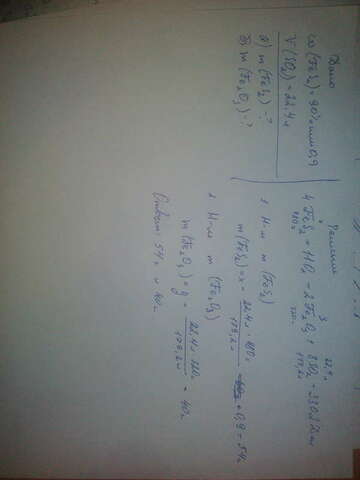 Дано
ω(FeS₂) = 90% или 0,9
V(SO₂) = 22,4 л
а) m(FeS₂) - ?
б) m(Fe₂O₃) - ?
Решение
x y 22,4л
4 FeS₂ + 11O₂ = 2Fe₂O₃ + 8SO₂
480г 320г 179,2л
1. Н-м m(FeS₂)
m(FeS₂) = x = 22,4л · 480г / 179,2л · 0,9 = 54г
2 Н-м m(Fe₂O₃)
m(Fe₂O₃) = y = 22,4л · 320г / 179,2л = 40г
Ответ: 54г и 40г.